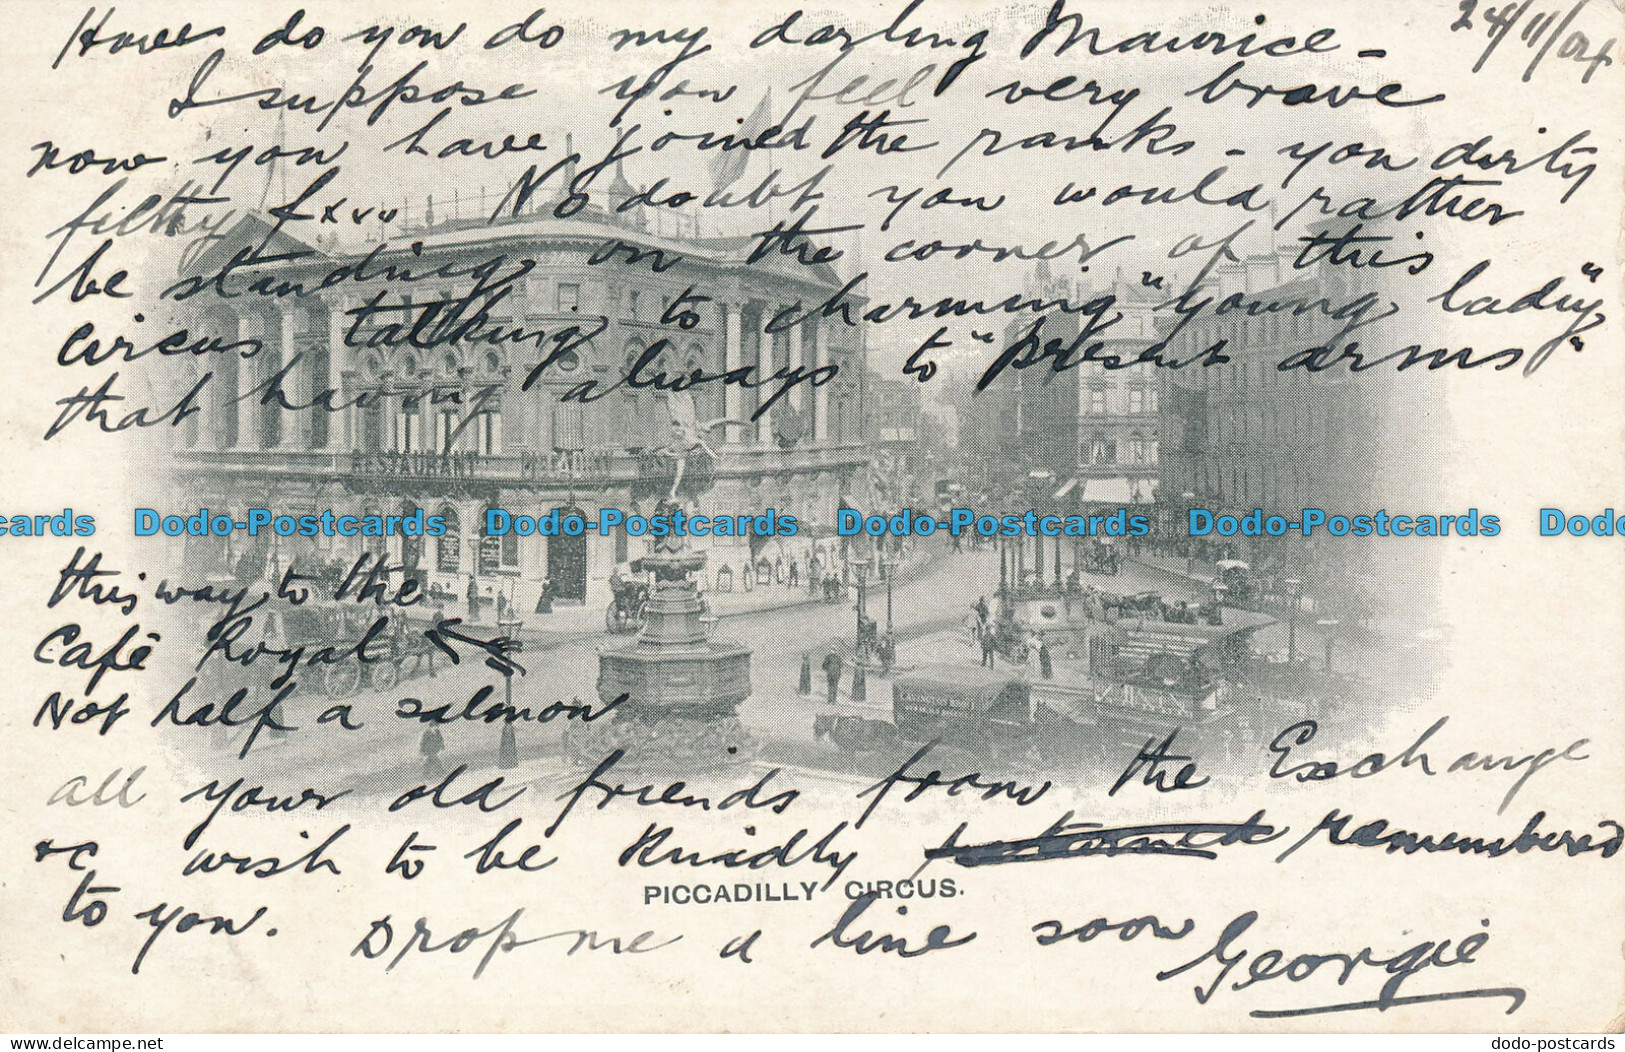 24/11/04
How do you do my darling Maurice -
I suppose you feel very brave
now you have joined the ranks - you dirty
filthy fxxxx No doubt you would rather
be standing on the corner of this
circus talking to charming "young lady"
that having always to "present arms"
RESTAURANT PICCADILLY
cards Dodo-Postcards Dodo-Postcards Dodo-Postcards Dodo-Postcards Dodo
this way to the
Café Royal
Not half a salmon
all your old friends from the Exchange
&c wish to be kindly remembered
to you. Drop me a line soon
PICCADILLY CIRCUS.
Georgie
www.delcampe.net
dodo-postcards